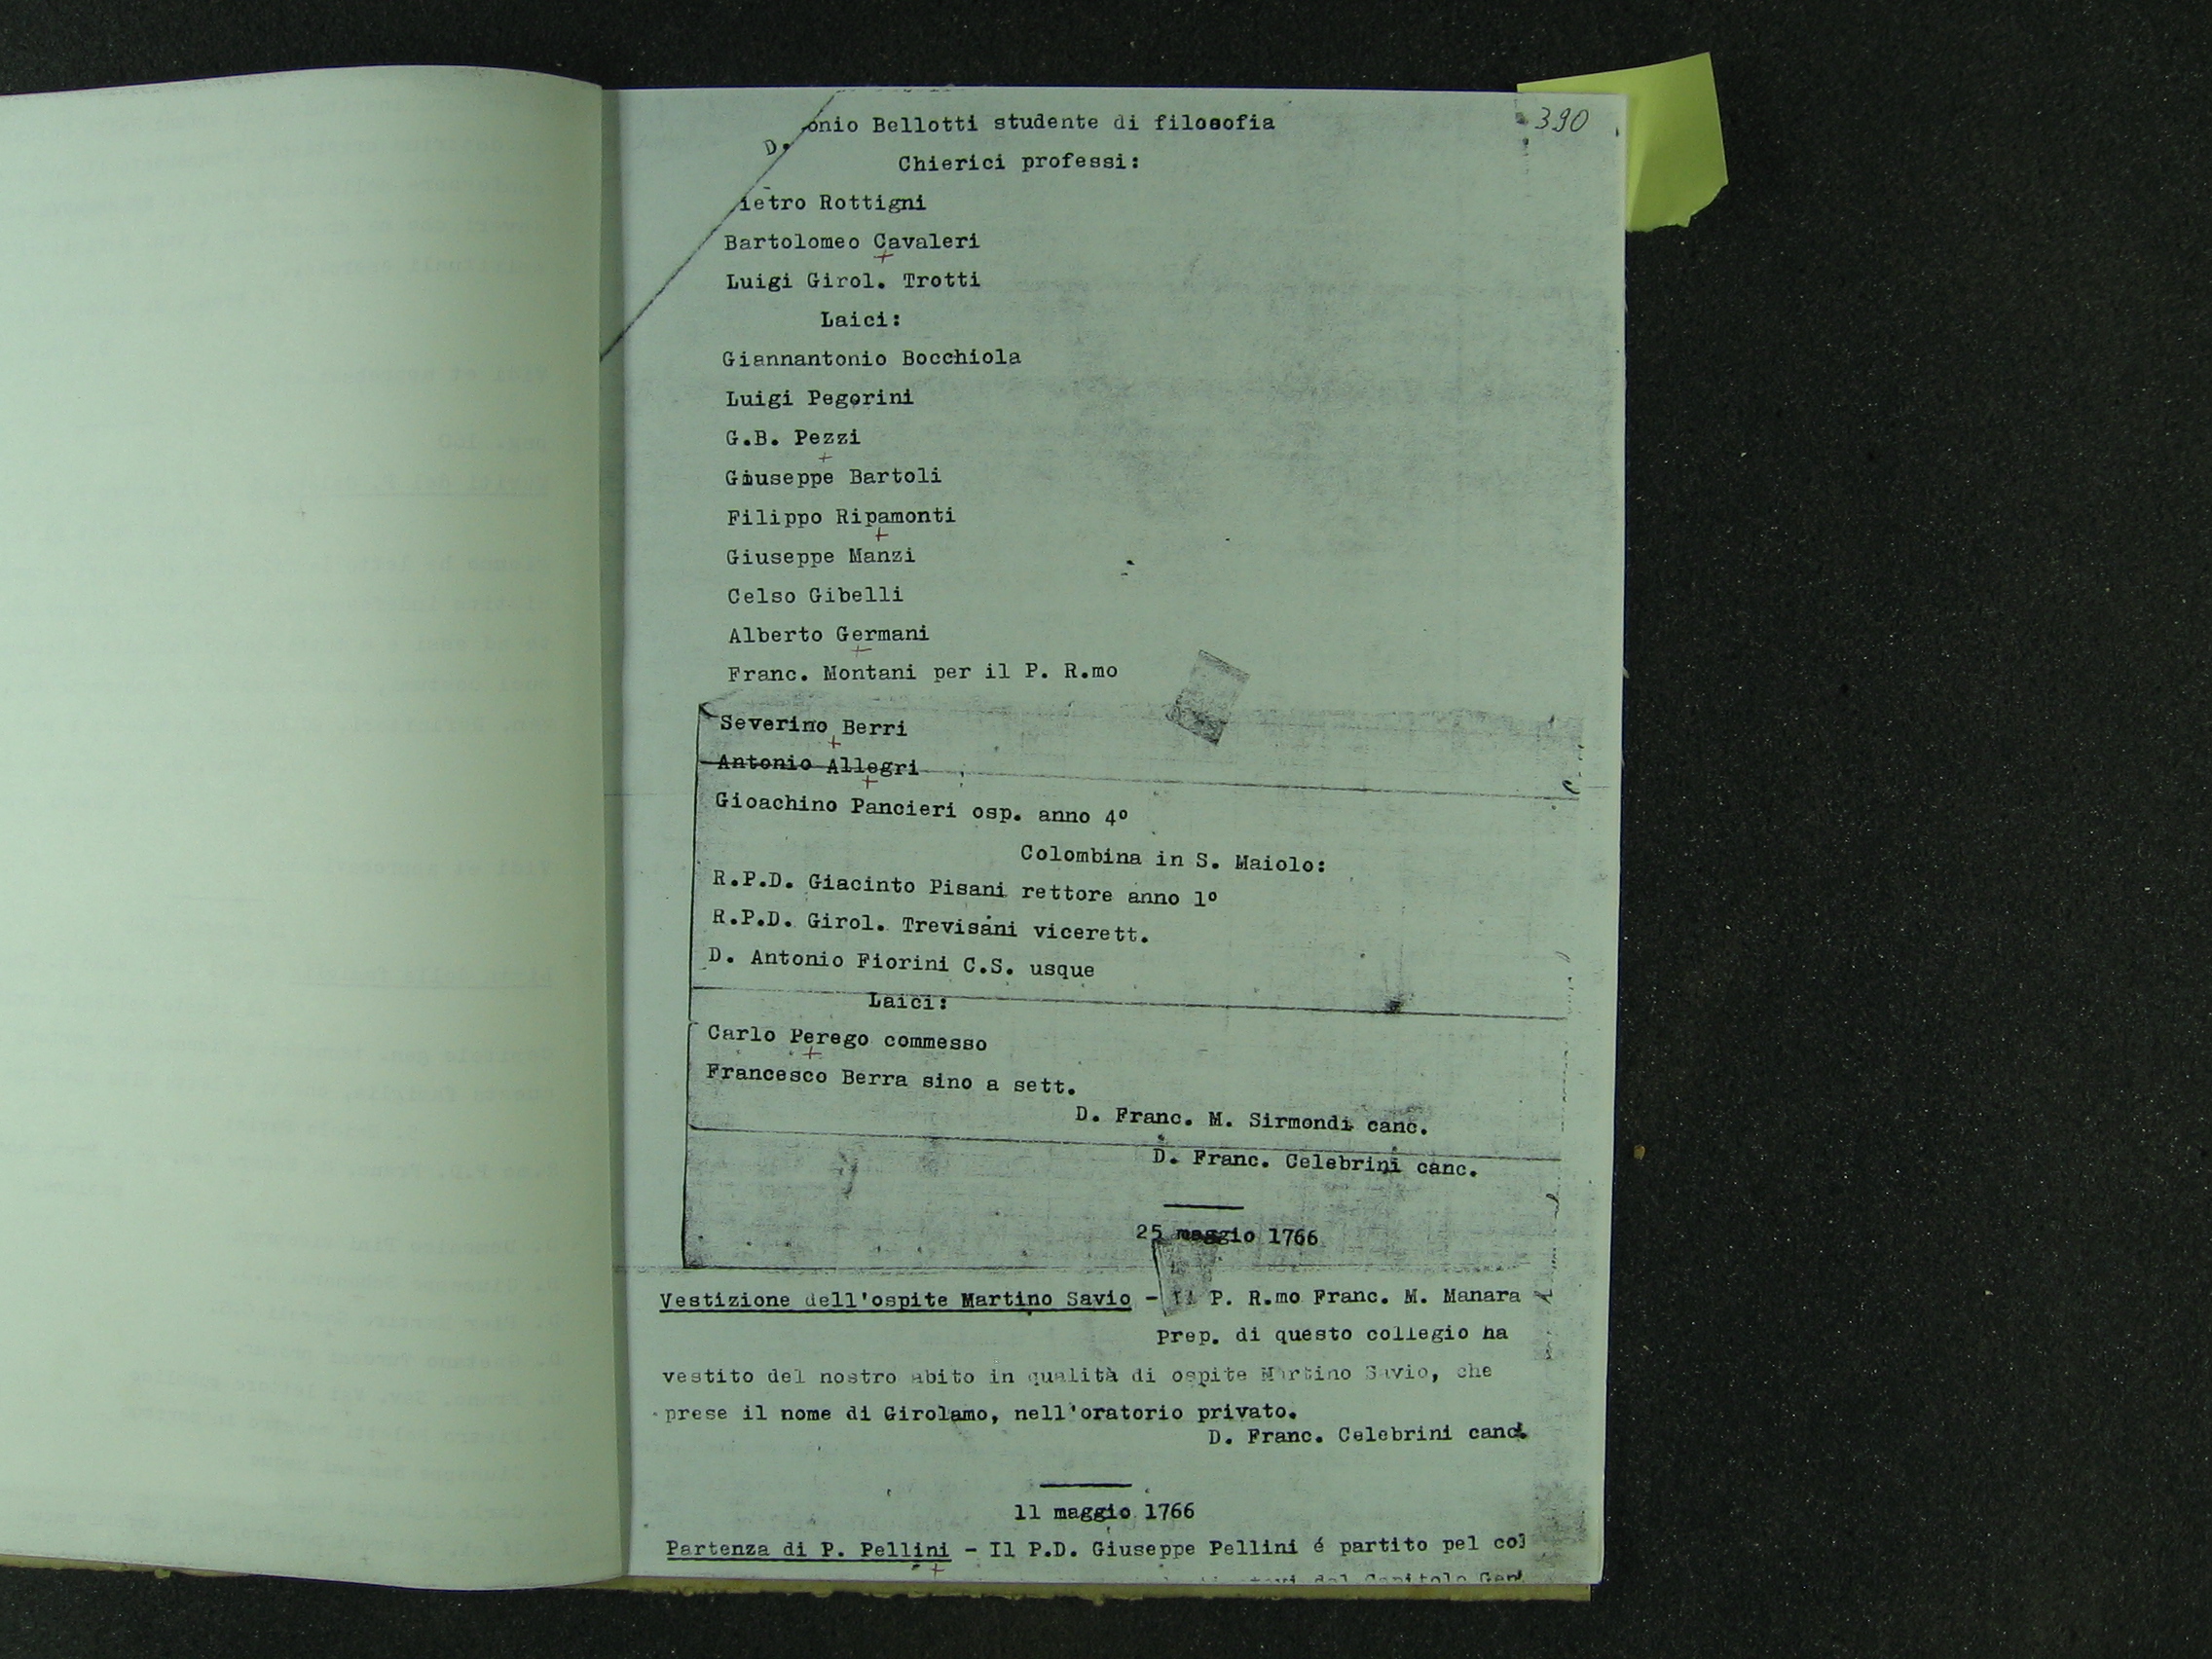 390
D. onio Bellotti studente di filosofia
Chierici professi:
ietro Rottigni
Bartolomeo Cavaleri
Luigi Girol. Trotti
Laici:
Giannantonio Bocchiola
Luigi Pegorini
G.B. Pezzi
Giuseppe Bartoli
Filippo Ripamonti
Giuseppe Manzi
Celso Gibelli
Alberto Germani
Franc. Montani per il P. R.mo
Severino Berri
Antonio Allegri
Gioachino Pancieri osp. anno 4º
Colombina in S. Maiolo:
R.P.D. Giacinto Pisani rettore anno 1º
R.P.D. Girol. Trevisani vicerett.
D. Antonio Fiorini C.S. usque
Laici:
Carlo Perego commesso
Francesco Berra sino a sett.
D. Franc. M. Sirmondi canc.
D. Franc. Celebrini canc.
25 maggio 1766
Vestizione dell'ospite Martino Savio - Il P. R.mo Franc. M. Manara
Prep. di questo collegio ha
vestito del nostro abito in qualità di ospite Martino Savio, che
prese il nome di Girolamo, nell'oratorio privato.
D. Franc. Celebrini canc.
11 maggio 1766
Partenza di P. Pellini - Il P.D. Giuseppe Pellini é partito pel col
del Capitolo Gen